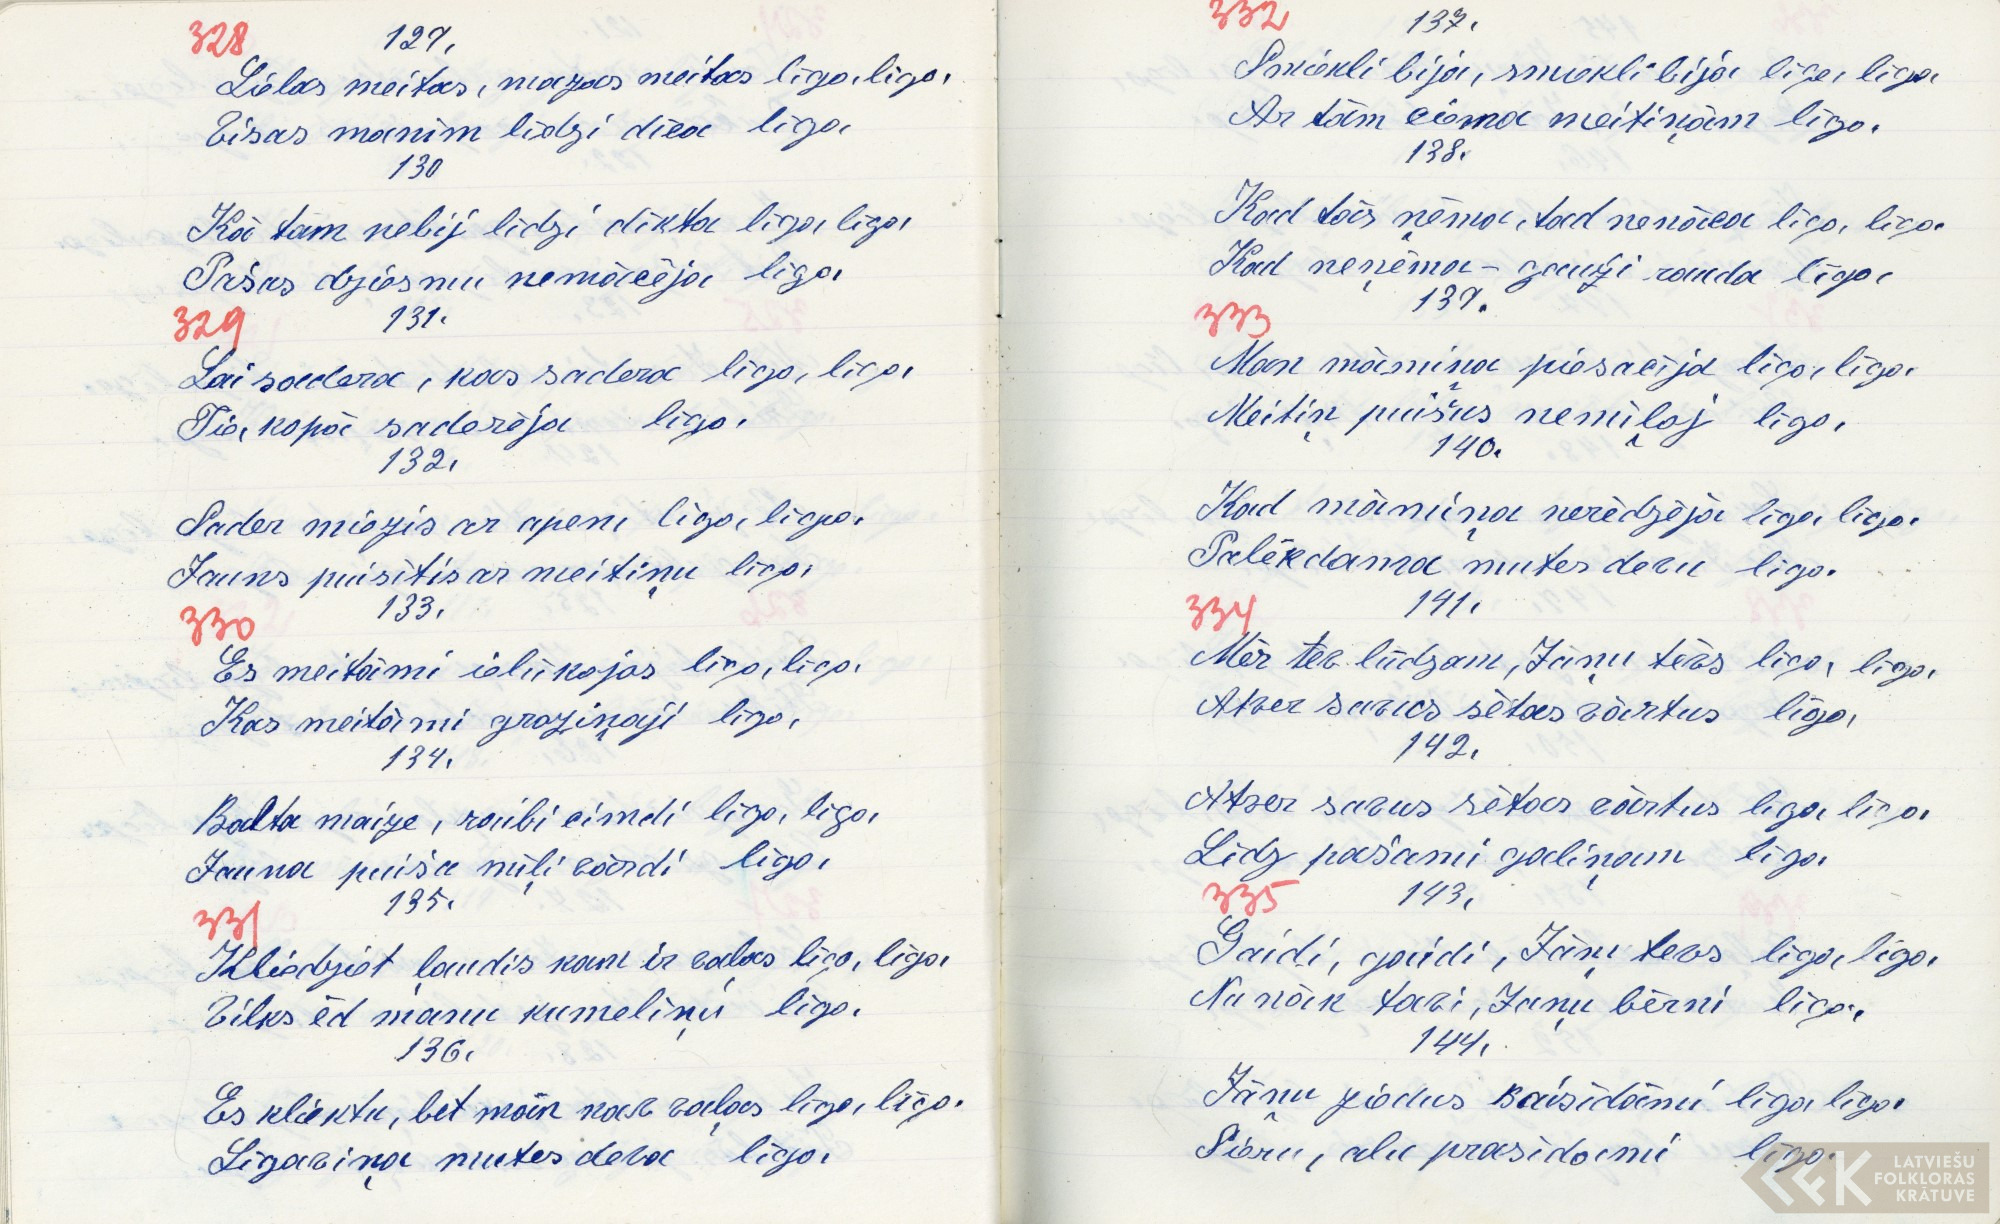 328 129.
Lielas meitas, mazas meitas līgo, līgo,
Visas manim līdzi dīca līgo
130
Kā tām nebij līdzi dīkta līgo, līgo,
Pašas dziesmu nemācēja līgo,
329 131.
Lai sadera, kas sadera līgo, līgo,
Tie kopā saderēja līgo.
132.
Sader miezis ar apeni līgo, līgo.
Jauns puisītis ar meitiņu līgo,
330 133.
Es meitāmi ielūkojos līgo, līgo.
Kas meitāmi groziņaji līgo,
134.
Balta maize, raibi cimdi līgo, līgo,
Jauna puiša mīļi vārdi līgo,
331 135.
Kliedziet ļaudis kam ir vaļas līgo, līgo,
Vilks ēd manu kumeliņu līgo.
136.
Es kliektu, bet mān nav vaļas līgo, līgo.
Līgaviņa mutes deva līgo,
332 137.
Smiekli bija, smiekli bija līgo, līgo
Ar tām ciema meitiņām līgo.
138.
Kad tās ņēma, tad nenāca līgo, līgo.
Kad neņēma - gauži rauda līgo,
333 139.
Man māmiņa piesacīja līgo, līgo.
Meitiņ puišus nemīļoj līgo,
140.
Kad māmiņa neredzēja līgo, līgo.
Palēkdama mutes devu līgo.
334 141.
Mēr tev lūdzam, Jāņu tēvs līgo, līgo,
Atver savas sētas vārtus līgo,
142.
Atver savus sētas vārtus līgo, līgo,
Līdz pašami galiņam līgo
335 143.
Gaidi, gaidi, Jāņu tevs līgo, līgo.
Nu nāk tavi, Jāņu bērni līgo,
144.
Jāņu ziedus kaisīdāmi līgo līgo.
Sieru, alu prasīdami līgo.
LATVIEŠU
FOLKLORAS
KRĀTUVE